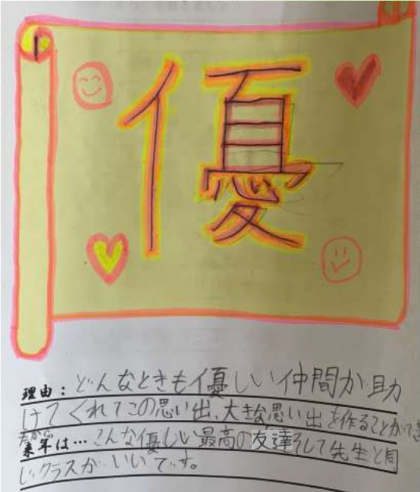 優
理由：どんなときも優しい仲間が助
けてくれてこの思い出、大きな思い出を作ることができ
たから
来年は…こんな優しい最高の友達そして先生と同
じクラスがいいです。